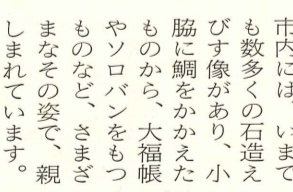 市内には、いまで
も数多くの石造え
びす像があり、小
脇に鯛をかかえた
ものから、大福帳
やソロバンをもつ
ものなど、さまざ
まなその姿で、親
しまれています。